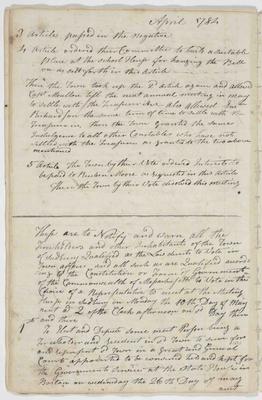 April 1784
3 Article passed in the Negative
4 Article ordered their Committee to build a suitable
place at the school House for hanging the Bell
on as set forth in this Article
Then the Town took up the 2d Article again and allowed
Capt Moulton till the next annual meeting in may
to settle with the Treasurer And also allowed
Parkers for the same term of time to settle with the
Treasurer in, then the Town Granted the same
Indulgence to all other Constables who have not
settled with the Treasurer as granted to the two above
mentioned
5 Article The Town by their Vote ordered Interest to
be paid to Reuben Moore as requested in this Article
Then the Town by their Vote dissolved this meeting
These are to Notify and warn all the
Freeholders and other Inhabitants of the Town
of Sudbury Qualified as the Law directs to Vote in
Town affairs and all such as are Qualified accord
ing to the Constitution or Form of Government
of the Commonwealth of Massachusetts to Vote in the
Choice of a Representative to meet at the Meeting
House in Sudbury on Monday the 10th Day of May
next at 2 of the Clock afternoon on sd Day then
and there
1st To Elect and Depute some meet Person being a
Freeholder and resident in sd Town to serve for
and represent sd Town in a Great and General
Court appointed to be convened held and kept for
the Governments Service at the State House in
Boston on wednesday the 26th Day of may
next